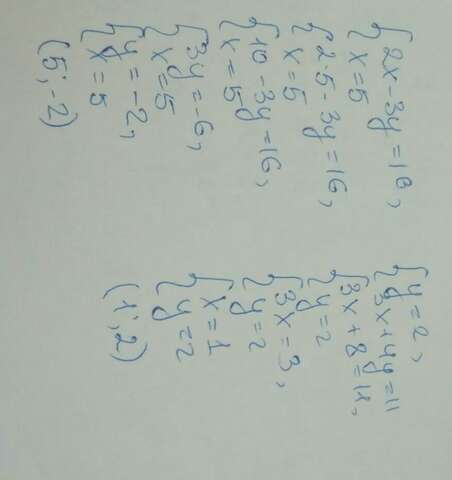 {2x-3y=16,
x=5
{2·5-3y=16,
x=5
{10-3y=16,
x=5
{3y=-6,
x=5
{y=-2,
x=5
(5;-2)
{y=2,
3x+4y=11
{3x+8=11,
y=2
{3x=3,
y=2
{x=1
y=2
(1;2)